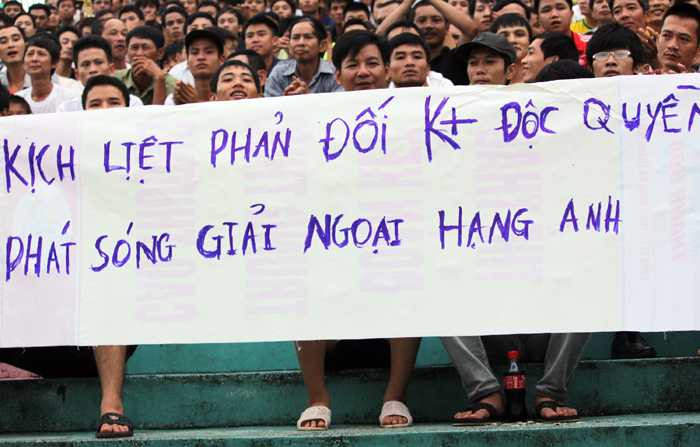 KỊCH LIỆT PHẢN ĐỐI K+ ĐỘC QUYỀN
PHÁT SÓNG GIẢI NGOẠI HẠNG ANH